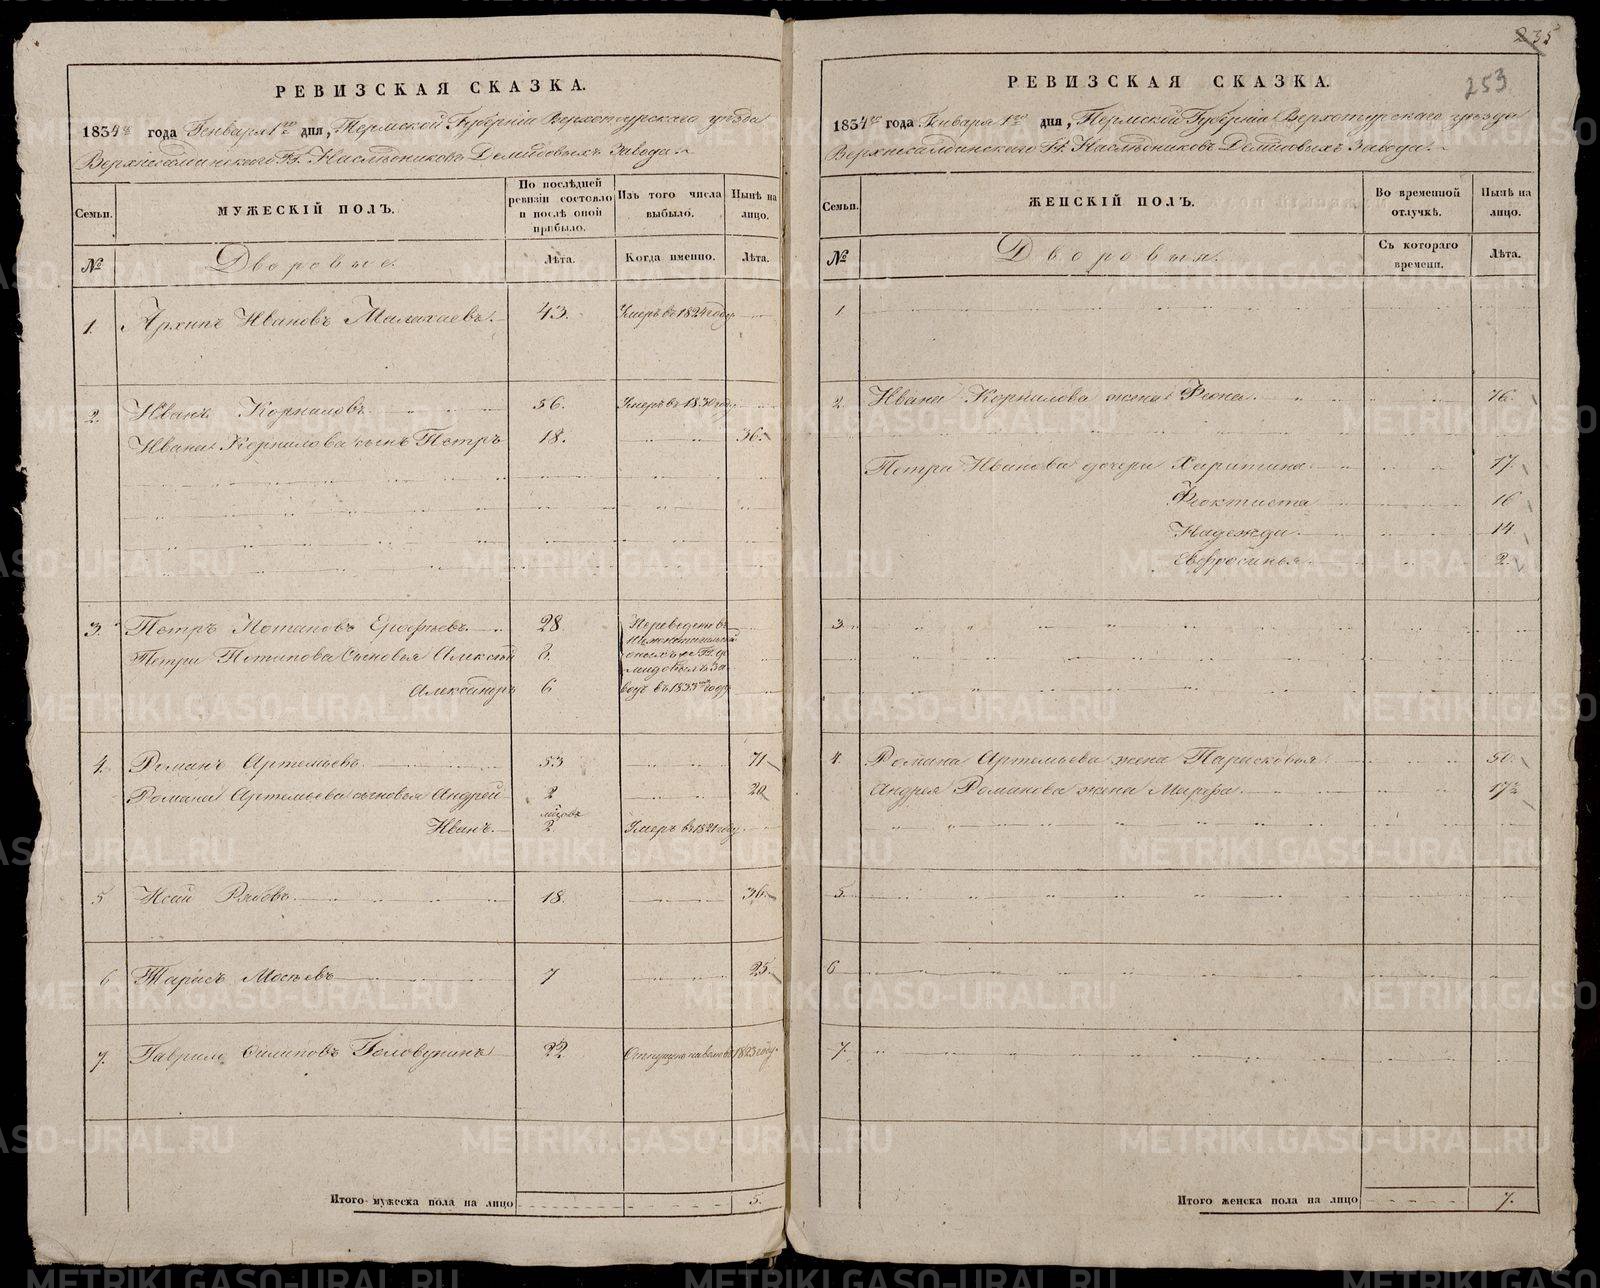 РЕВИЗСКАЯ СКАЗКА.
1834го года Генваря 1го дня, Пермской Губерніи Верхотурскаго уѣзда
Верхнесалдинскаго Гг. Наслѣдниковъ Демидовыхъ Завода.
Семьи.
МУЖЕСКІЙ ПОЛЪ.
По послѣдней ревизіи состояло и послѣ оной прибыло.
Изъ того числа выбыло.
Нынѣ на лицо.
№
Дворовые.
Лѣта.
Когда именно.
Лѣта.
1. Архипъ Ивановъ Малахаевъ. 43. Умеръ въ 1824 году
2. Иванъ Корниловъ 56. Умеръ въ 1830 году
Ивана Корнилова сынъ Петръ 18. 36.
3. Петръ Потаповъ Ерофѣевъ. 28 Переведены въ
Петра Потапова сыновья Алексѣй 8.
Александръ 6 водъ въ 1833мъ году
4. Романъ Артемьевъ 53 71
Романа Артемьева сыновья Андрей 2 20
Иванъ. 2 Умеръ въ 1821 году
5 Исай Рябовъ 18. 36.
6 Тарасъ Мосѣевъ 7 25.
7. Гаврило Филиповъ Головунинъ 22 Отпущенъ на волю въ 1823 году.
Итого мужеска пола на лицо 5.
235
253
РЕВИЗСКАЯ СКАЗКА.
1834го года Генваря 1го дня, Пермской Губерніи Верхотурскаго уѣзда
Верхнесалдинскаго Гг. Наслѣдниковъ Демидовыхъ Завода.
Семьи.
ЖЕНСКІЙ ПОЛЪ.
Во временной отлучкѣ.
Нынѣ на лицо.
№
Дворовыя.
Съ котораго времени.
Лѣта.
1
2. Ивана Корнилова жена Феона. 76.
Петра Иванова дочери Харитина 17
Феоктиста 16
Надежда 14
Евфросинья 2.
3.
4. Романа Артемьева жена Парасковья 50.
Андрея Романова жена Марфа 17½
5.
6
7.
Итого женска пола на лицо 7.
METRIKI.GASO-URAL.RU